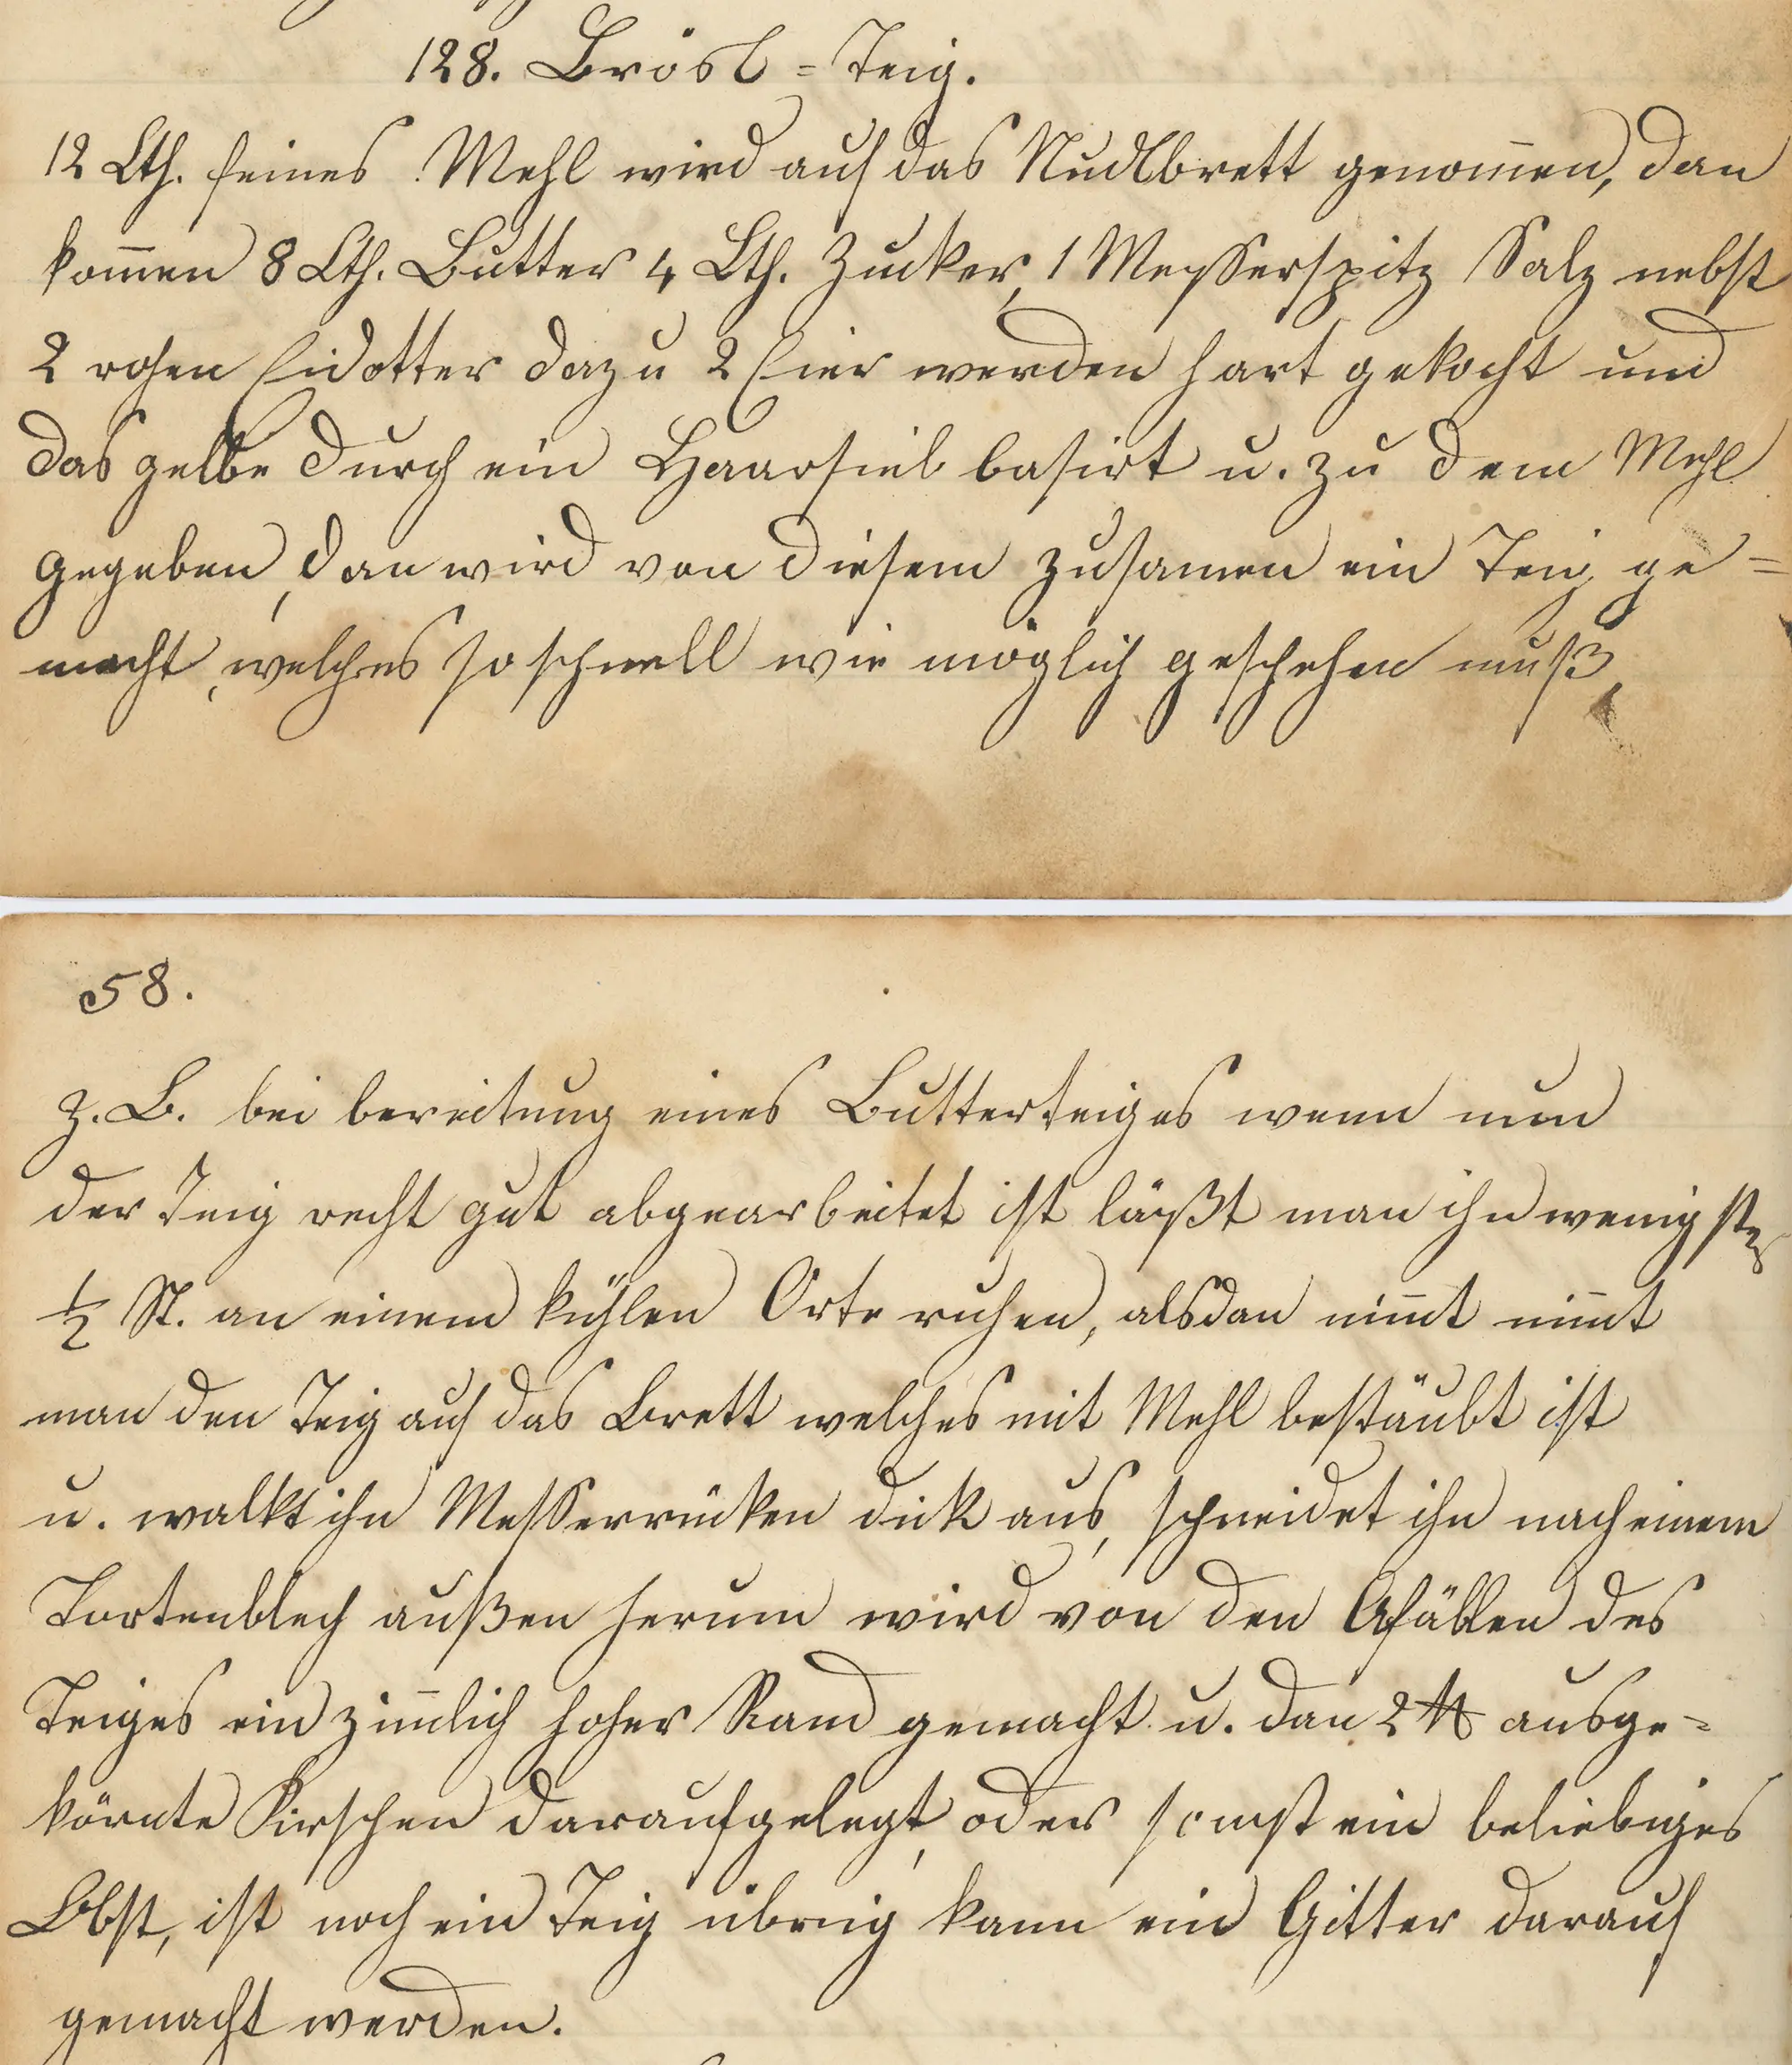 128. Brösl=Teig.
12 Lth. feines Mehl wird auf das Nudlbrett genom̄en, dan
kom̄en 8 Lth. Butter 4 Lth. Zucker, 1 Messerspitz Salz nebst
2 rohen Eidotter dazu 2 Eier werden hart gekocht und
das gelbe durch ein Haarsieb basirt u. zu dem Mehl
gegeben, dan wird von diesem zusamen ein Teig ge=
macht, welches so schnell wie möglich geschehen muß,
58.
z. B. bei bereitung eines Butterteiges wenn nun
der Teig recht gut abgearbeitet ist läßt man ihn wenigstens
½ St. an einem kühlen Orte ruhen, alsdan nim̄t nim̄t
man den Teig auf das Brett welches mit Mehl bestäubt ist
u. walkt ihn Messerrücken dick aus, schneidet ihn nach einem
Tortenblech außen herum wird von den Afällen des
Teiges ein zim̄lich hoher Rand gemacht u. dan 2 ℔ ausge=
körnte Kirschen daraufgelegt, oder sonst ein beliebiges
Obst, ist noch ein Teig übrig kann ein Gitter darauf
gemacht werden.